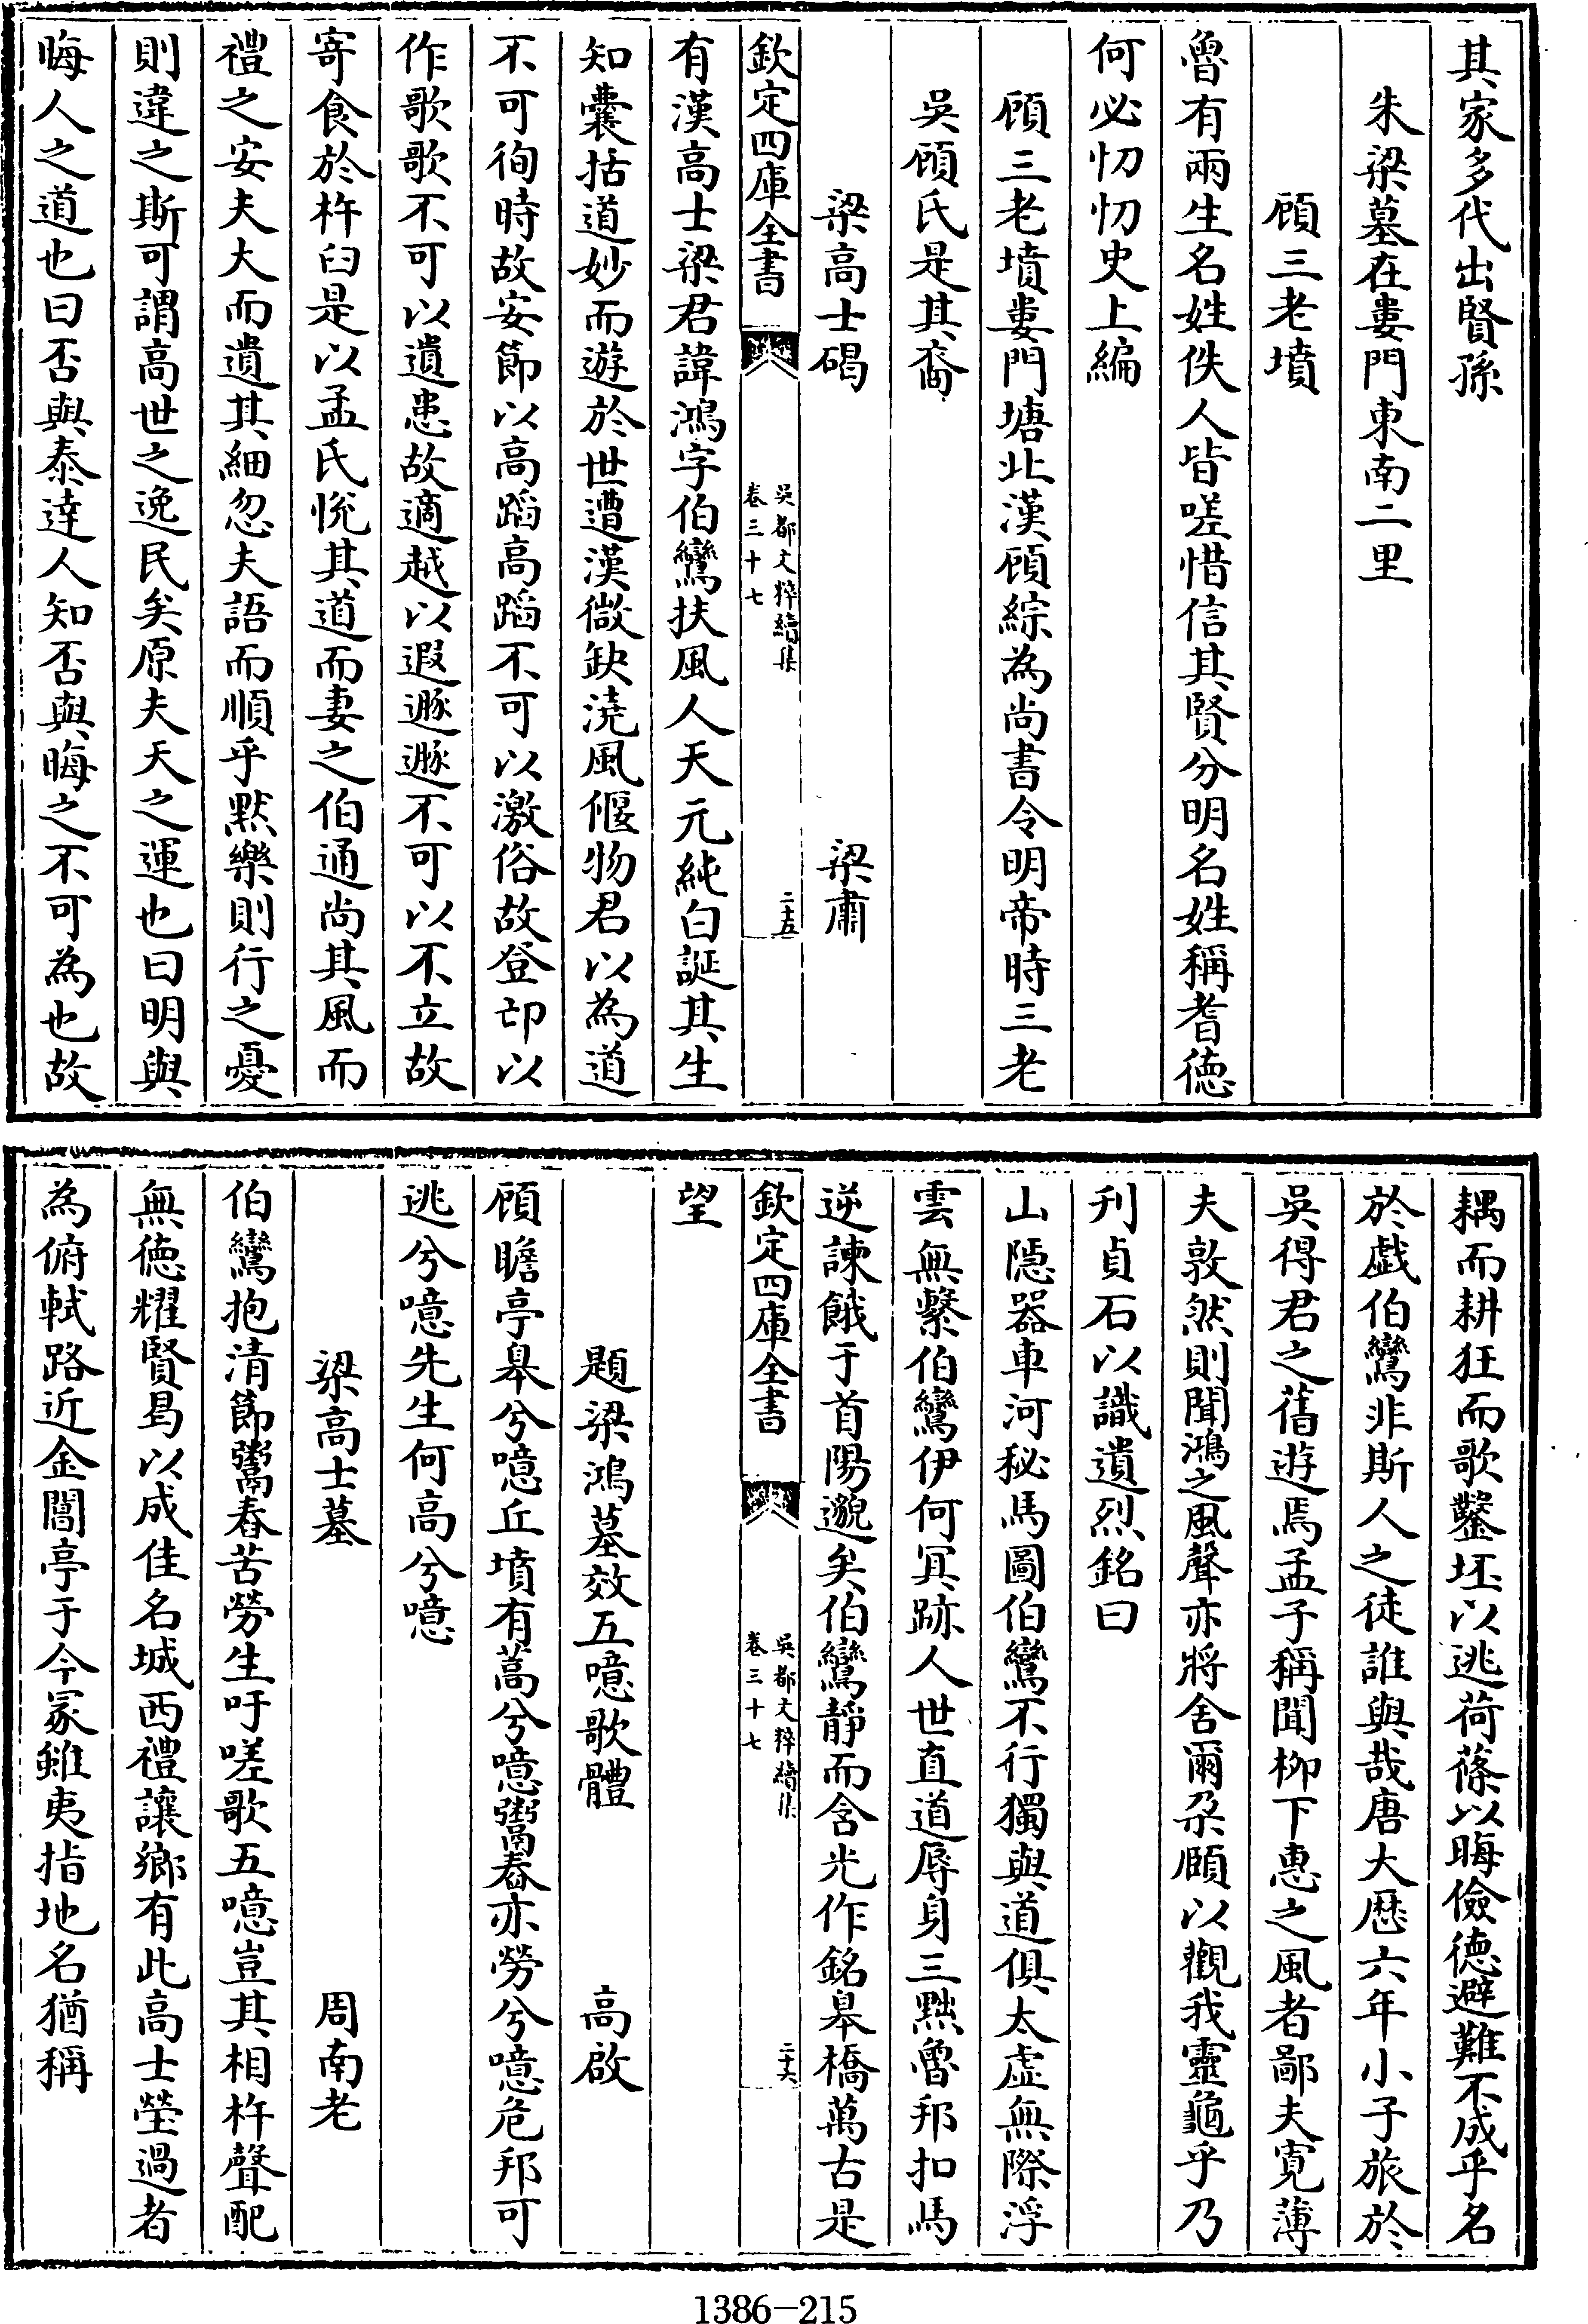 其家多代出賢孫
朱梁墓在婁門東南二里
顧三老墳
魯有兩生名姓佚人皆嗟惜信其賢分明名姓稱耆德
何必忉忉史上編
顧三老墳婁門塘北漢顧綜為尚書令明帝時三老
吳顧氏是其裔
梁高士碣　梁肅
欽定四庫全書　吳都文粹續集　卷三十七　二十五
有漢高士梁君諱鴻字伯鸞扶風人天元純白誕其生
知囊括道妙而遊於世遭漢微缺澆風偃物君以為道
不可徇時故安節以高蹈高蹈不可以激俗故登邙以
作歌歌不可以遺患故適越以遐遯遯不可以不立故
寄食於杵臼是以孟氏悅其道而妻之伯通尚其風而
禮之安夫大而遺其細忽夫語而順乎默樂則行之憂
則違之斯可謂高世之逸民矣原夫天之運也曰明與
晦人之道也曰否與泰達人知否與晦之不可為也故
耦而耕狂而歌鑿坯以逃荷蓧以晦儉德避難不成乎名
於戲伯鸞非斯人之徒誰與哉唐大歷六年小子旅於
吳得君之舊遊焉孟子稱聞柳下惠之風者鄙夫寬薄
夫敦然則聞鴻之風聲亦將舍爾朶頤以觀我靈龜乎乃
刋貞石以識遺烈銘曰
山隱器車河秘馬圖伯鸞不行獨與道俱太虛無際浮
雲無繫伯鸞伊何冥跡人世直道辱身三黜魯邦扣馬
逆諫餓于首陽邈矣伯鸞靜而含光作銘皋橋萬古是
欽定四庫全書　吳都文粹續集　卷三十七　二十六
望
題梁鴻墓效五噫歌體　高啟
顧瞻亭皋兮噫丘墳有蒿兮噫鬻舂亦勞兮噫危邦可
逃兮噫先生何高兮噫
梁高士墓　周南老
伯鸞抱清節鬻舂苦勞生吁嗟歌五噫豈其相杵聲配
無德耀賢曷以成佳名城西禮讓鄉有此高士塋過者
為俯軾路近金閶亭于今冡雖夷指地名猶稱
1386-215